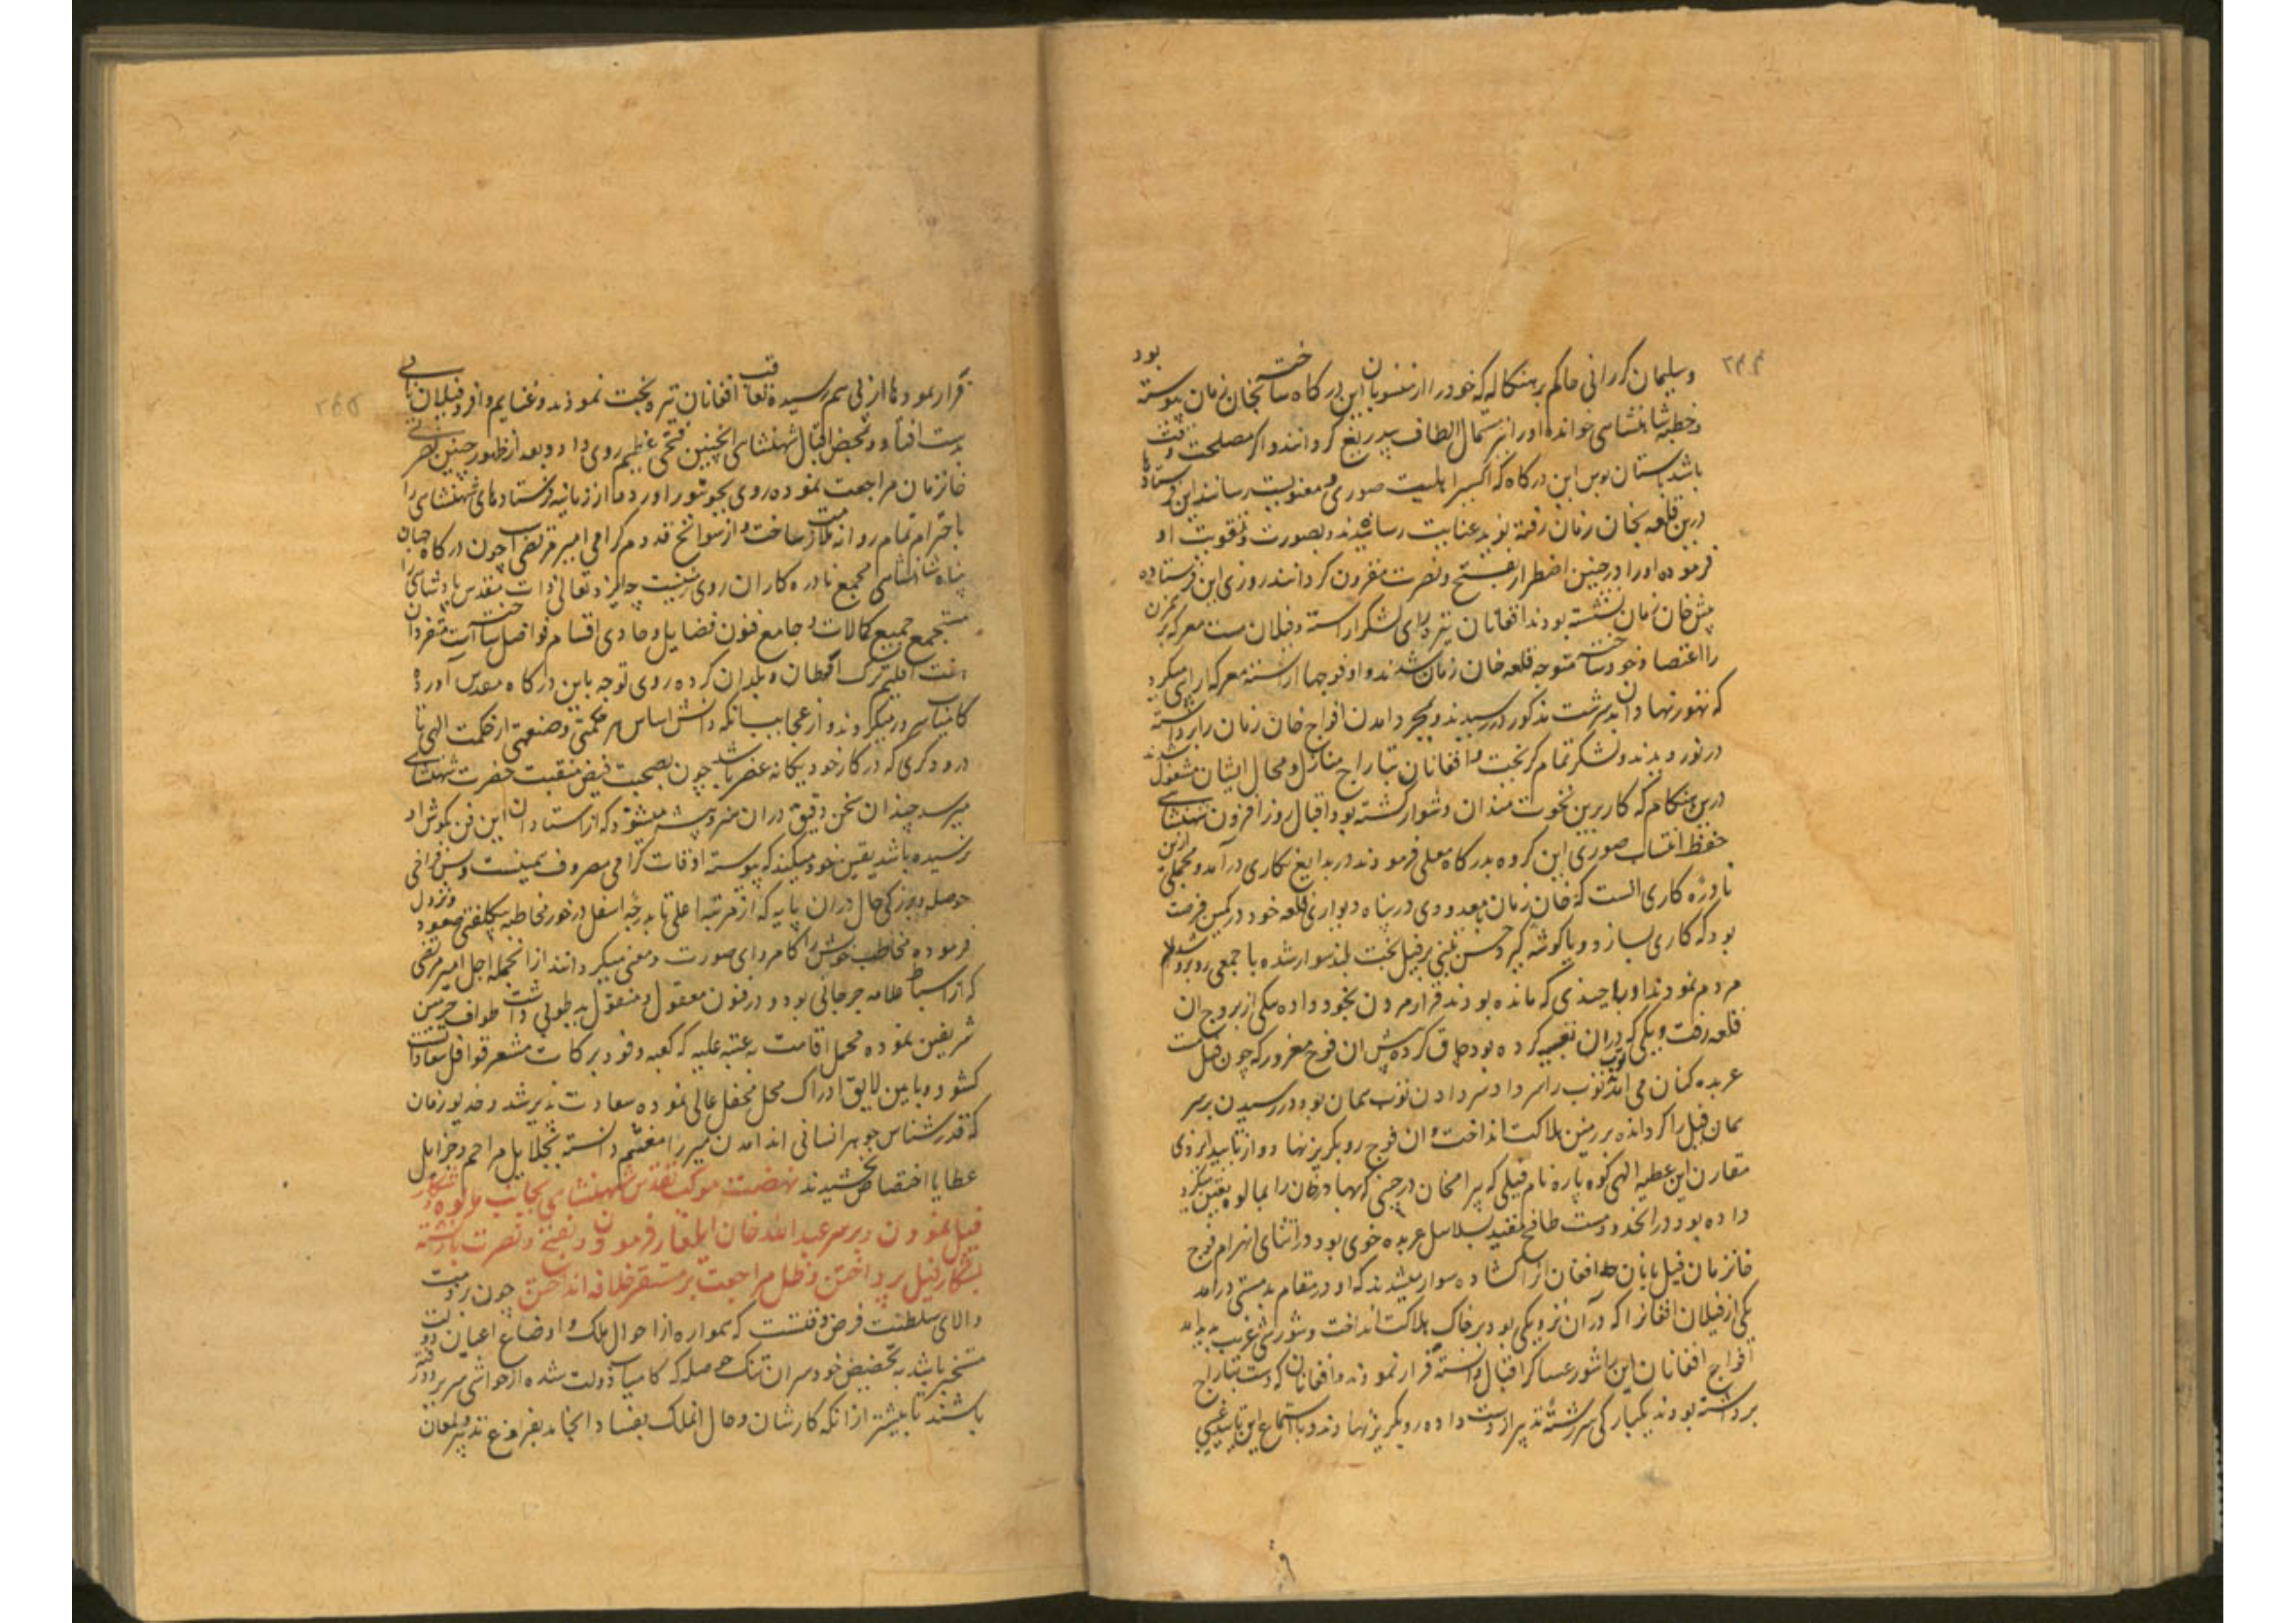 ۲۴۴
وسلیمان کررانی حاکم بربنکاله که خود را از منسوبان این درکاه ساخته بخان زمان پیوسته بود
وخطبه شاهنشاهی خوانده اورا نیز الطاف بیدریغ کردانند واکر مصلحت وقت
باشد باستان بوس این درکاه که اکسیر اهلیت صوری و معنویست رسانند این فرستادها
درین قلعه بخان زمان رفته نوید عنایت رسانیدند و بصورت و تقویت او
فرموده اورا در چنین اضطرار بفتح و نصرت مقرون کردانند روزی این فرستاده
پیش خان زمان نشسته بودند افغانان تیره رای لشکر اراسته و فیلان مست معرکه بر
را اعتضاد خود ساخته متوجه قلعه خان زمان شدند و او فوجها اراسته معرکه ارای میکرد
که تهور نهادان بدسرشت مذکور در رسیدند و بمجرد امدن افواج خان زمان را برداشته
در نور دیدند ولشکر تمام کریخت و افغانان بتاراج منازل و محال ایشان مشغول شدند
درین هنکام که کار برین نخوت مندان دشوار کشته بود اقبال روز افزون شهنشاهی
حفظ انتساب صوری این کروه بدرکاه معلی فرموده در بدایع نکاری درآمد و مجملی ازین
نادره کاری انست که خان زمان با معدودی در پناه دیواری قلعه خود در کمین فرصت
بود که کاری بسازد و یا کوشه کیرد حسن بتنی بر فیل بخت بلند سوار شده با جمعی روبرو شد
مردم نمودند او با چندی که مانده بودند قرار مردن بخود داده بیکی از بروج ان
قلعه رفت و یکی که دران تعبیه کرده بود چاق کرده پیش ان فوج مغرور که چون فیل مست
عربده کنان می امد توپ را سر داد سر دادن توپ همان بود و در رسیدن بر سر
همان فیل را کردانده بر زمین هلاکت انداخت و ان فوج رو بکریز نهاد و از تایید ایزدی
مقارن این عطیه الهی کوه پاره نام فیلی که بیرامخان در حینی که بهادرخان را بمالوه تعین میکرد
داده بود در انحدود مست طافح مقید بسلاسل عربده خوی بود در اثنای انهزام فوج
خانزمان فیل بانان افغان انرا کشاده سوار میشدند که او در مقام بدمستی درامد
یکی از فیلان افغانرا که دران نزدیکی بود بر خاک هلاکت انداخت و شورش غریب پدید امد
افواج افغانان این را شور عساکر اقبال دانسته فرار نمودند و افغانان که دست بتاراج
برداشته بودند یکبارکی سررشته تدبیر از دست داده رو بکریز نهادند و باستماع این تایید غیبی
فرار نموده ها از پی هم رسیده تعاقب افغانان تیره بخت نمودند و غنایم وافر و فیلان نامی
بدست افتاد و بمحض اقبال شهنشاهی اینچنین فتحی عظیم روی داد و بعد از ظهور چنین نصرتی
خانزمان مراجعت نموده روی بجونپور اورد و ما از زمانیه فرستادهای شهنشاهی را
باحترام تمام روانه ملازمت ساخت و از سوانح قدوم کرامی امیر مرتضی است چون درکاه جهان
پناه شاهنشاهی مجمع نادره کاران روی زمینست چه ایزد تعالی ذات مقدس پادشاهی را
مستجمع جمیع کمالات و جامع فنون فضایل و حاوی اقسام فواضل ساخته است متفردان
هفت اقلیم ترک اوطان و بلدان کرده روی توجه باین درکاه مقدس آورده
کامیاب میکردند و از عجایب انکه دانش اساس هر حکمتی و صنعتی از حکمت الهی تا
درودکری که در کار خود یکانه عصر باشد چون بصحبت فیض منقبت حضرت شهنشاهی
میرسد چندان سخن دقیق دران هنر و پیشه میشنود که از استادان این فن بکوش او
نرسیده باشد یقین خود میکند که پیوسته اوقات کرامی مصروف همینست و بس فراخی
حوصله و بزرکی حال دران پایه که از مرتبه اعلی تا بدرجه اسفل در خور مخاطبه بیکلفتی صعود و نزول
فرموده مخاطب خویش را کامروای صورت و معنی میکردانند از انجمله اجل امیر مرتضی
که از اسباط علامه جرجانی بود و در فنون معقول و منقول ید طولی داشت طواف حرمین
شریفین نموده محمل اقامت به عتبه علیه که کعبه وفود برکات مشعر قوافل سعاداتست
کشود و بآیین لایق ادراک محل محفل عالی نموده سعادت پذیر شد و خدیو زمان
که قدرشناس جوهر انسانی اند امدن میر را مغتنم دانسته بجلایل مراحم و جزایل
عطایا اختصاص بخشیدند نهضت موکب مقدس شهنشاهی بجانب مالوه و شکار
فیل نمودن و بر سر عبدالله خان ایلغار فرمودن و بفتح و نصرت بازکشته
بشکار فیل پرداختن و ظل مراجعت بر مستقر خلافه انداختن چون بر همت
والای سلطنت فرض وقتست که همواره از احوال ملک و اوضاع اعیان دولت
متخبر باشد به تخصیص خودسران تنک حوصله که کامیاب دولت شده از حواشی سریر دور رفته
باشند تا بیشتر از انکه کارشان و حال انملک بفساد انجامد بفروغ تدبیر لمعان